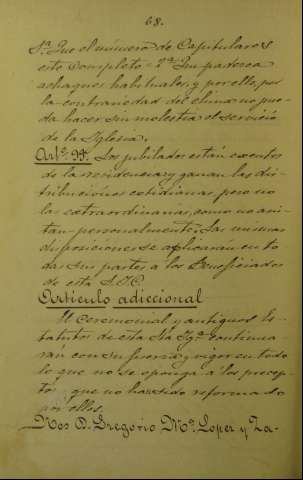 68.
1ª Que el número de Capitulares
esté completo = 2ª Que padezca
achaques habituales, y por ello, por
la contrariedad del clima no pue-
da hacer sin molestia el servicio
de la Iglesia.
Artº 99. Los jubilados están exentos
de la residencia y ganan las dis-
tribuciones cotidianas, pero no
las extraordinarias, como no asis-
tan personalmente. Las mismas
disposiciones se aplicarán en to-
das sus partes a los Beneficiados
de esta S.I.C.
Artículo adiccional
El Ceremonial y antiguos Es-
tatutos de esta Sta Igª continua-
rán con su fuerza y vigor en todo
lo que no se oponga á los precep-
tos, que no ha sido reformado
por ellos.
Nos D. Gregorio Mª Lopez y Za-